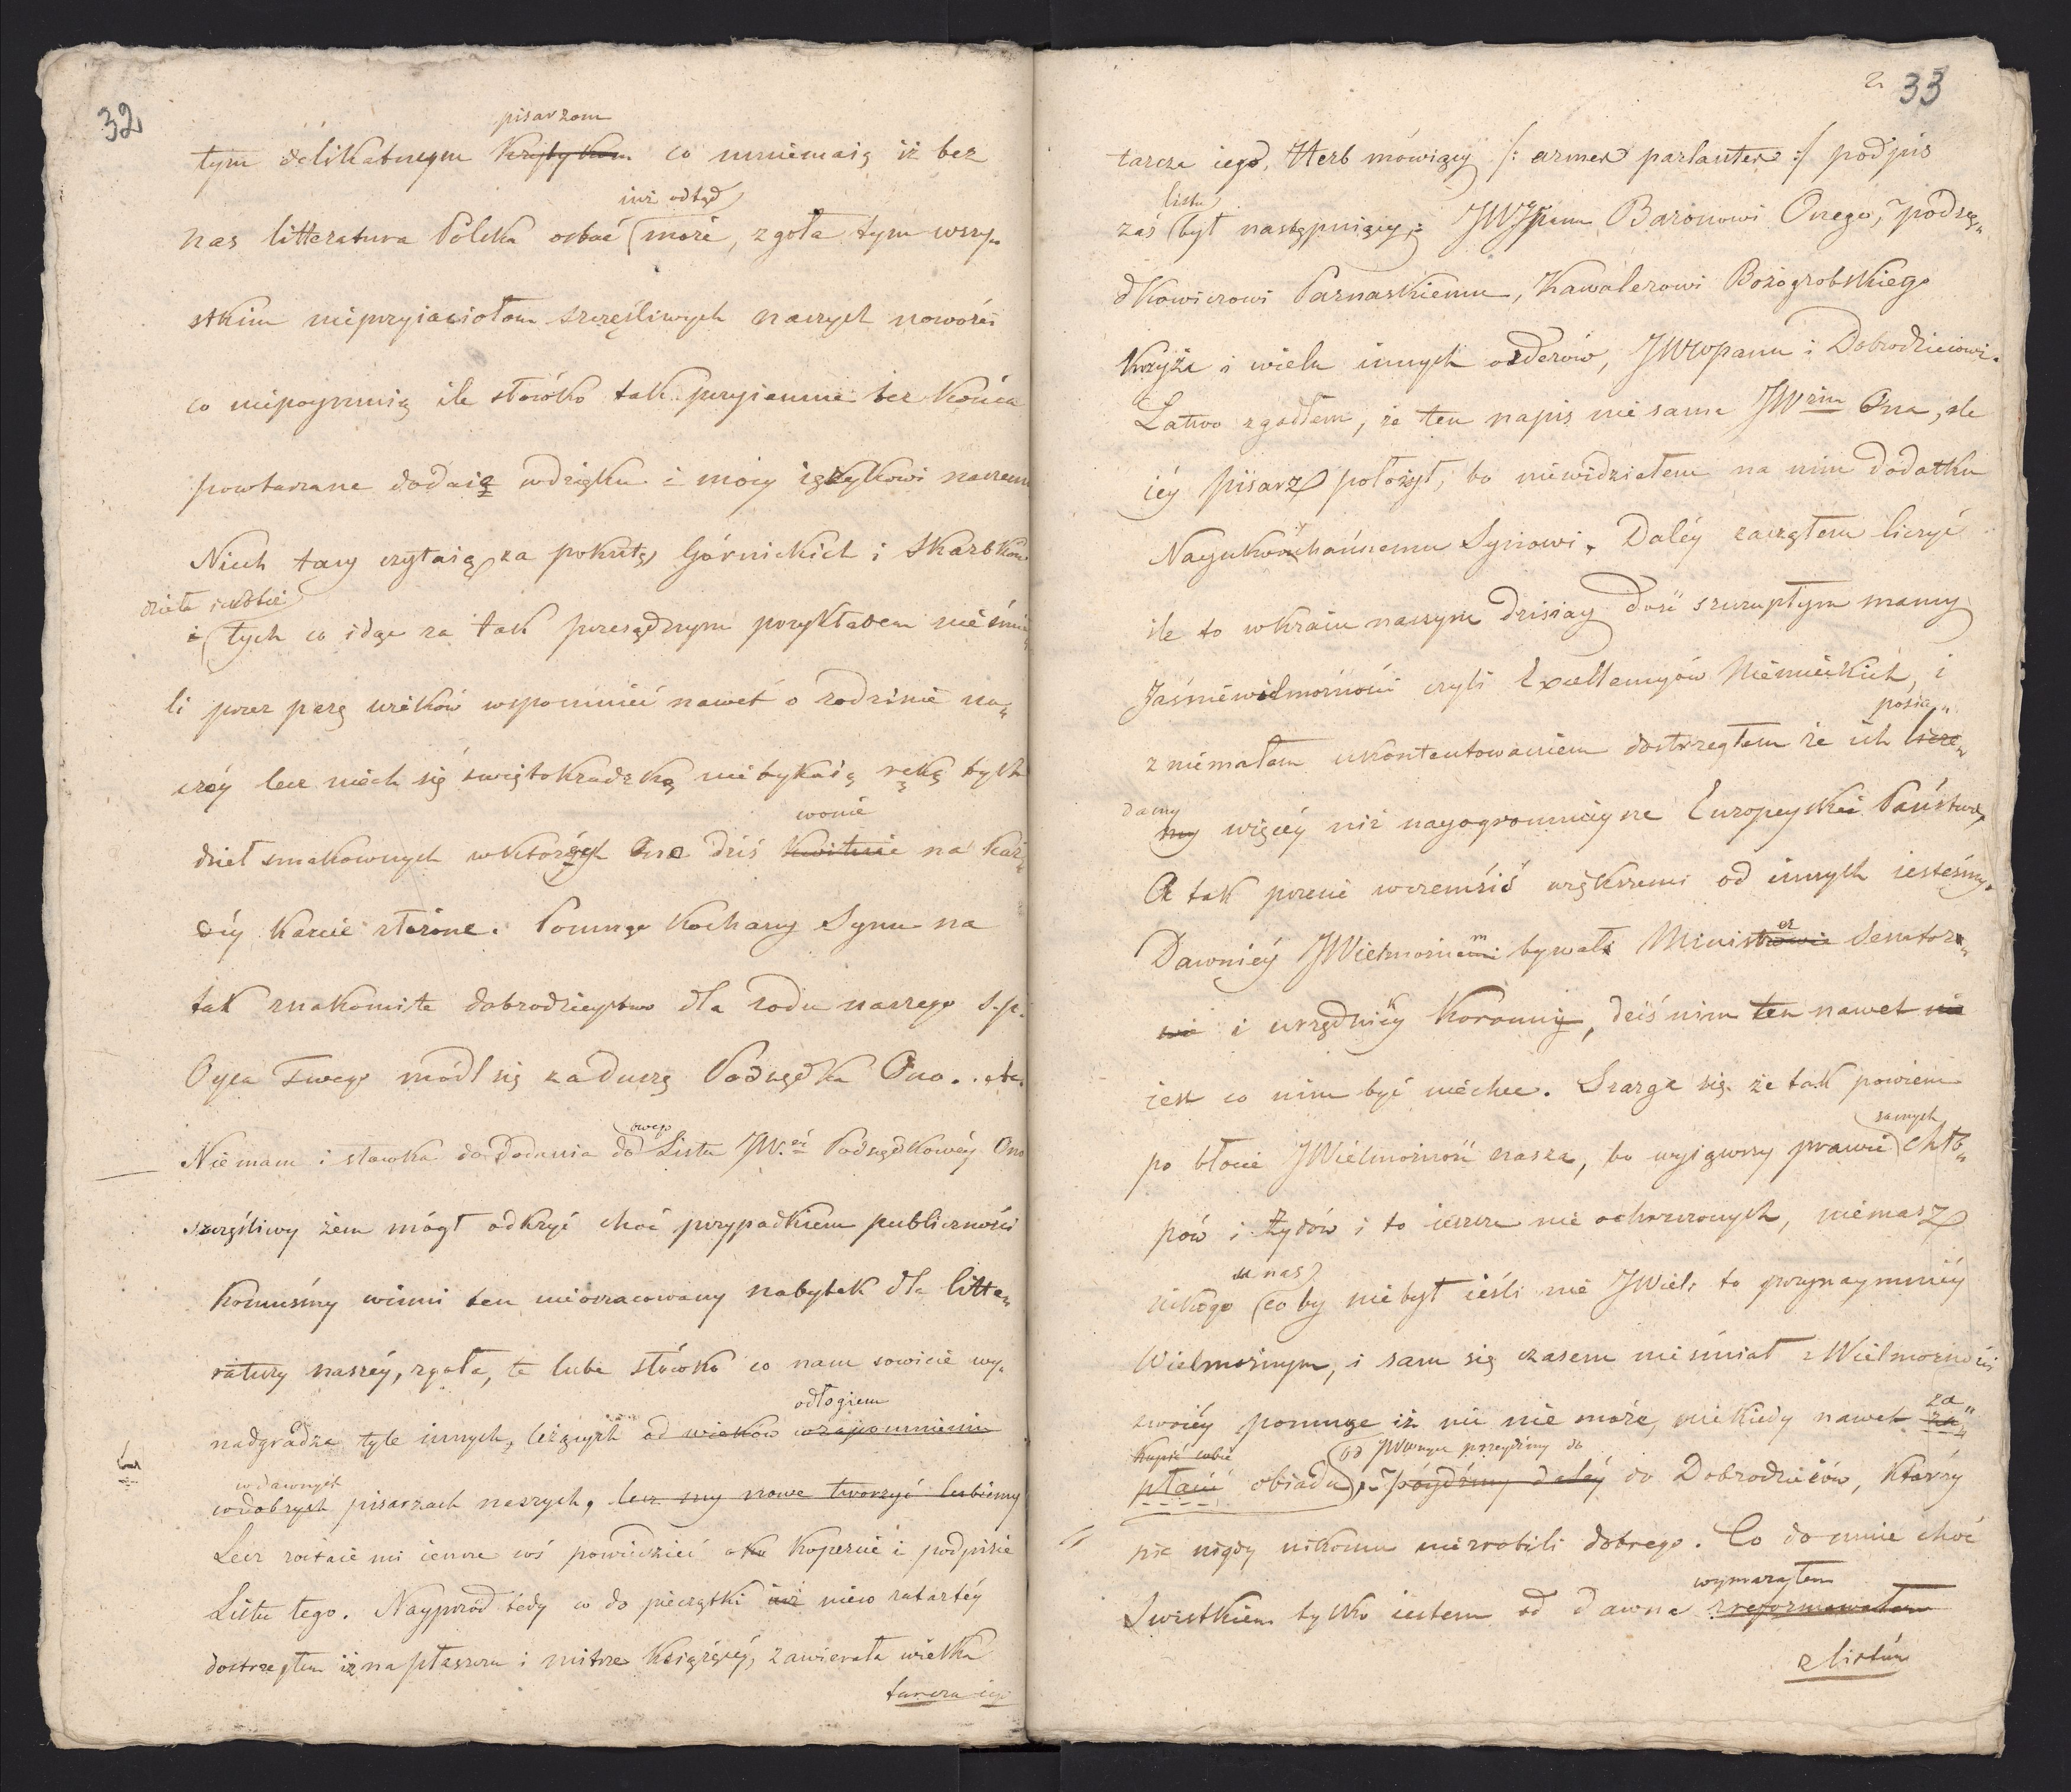 32
pisarzom
tym delikatnym Krytykom co mniemaią iż bez
iuż odtąd
nas litteratura Polska ostać może, zgoła tym wszy-
stkim nieprzyiaciołom szczęśliwych naszych nowości
co niepoymuią ile słówko tak przyiemne bez końca
powtarzane dodaią wdzięku i mocy ięzykowi naszemu
Niech tacy czytaią za pokutę Górnickich i Skarbków
dzieła
i tych co idąc za tak przesądnym przykładem nie śmie
li przez parę wieków wspomnieć nawet o rodzinie na„
széy lecz niech się świętokradzką nie tykaią ręką tych
wonie
dzieł smakownych w których Ona dziś kwitnie na każ„
déy karcie złożone. Pomnąc kochany Synu na
tak znakomite dobrodzieystwo dla rodu naszego ś. p.
Oyca Twego módl się za duszę Podsędka Ono..
owego
Nie mam i słowka do dodania do Listu JW.éj Podsędkowéy Ono
szczęśliwy żem mógł odkryć choć przypadkiem publiczności
komuśmy winni ten nieoszacowany nabytek dla litte„
ratury naszéy, zgoła, te lube słówko co nam sowicie wy-
odłogiem
nadgradza tyle innych, leżących od wieków w zapomnieniu
w dawnych
w dobrych pisarzach naszych, lecz my nowe tworzyć lubiemy
Lecz zostaie mi ieszcze coś powiedzieć o kopercie i podpisie
Listu tego. Nayprzód tedy co do pieczątki iuż nieco zatartéy
dostrzegłem iż na płaszczu i mitrze Książęcéy, zawierała wielka
tarcza iego
2. 33
tarcza iego, Herb mówiący /: armes parlantes :/ podpis
listu
zaś był następuiący: JWJpanu Baronowi Onego, podsę„
dkowiczowi Parnaskiemu, Kawalerowi Bożogrobskiego
Krzyża i wielu innych orderów, JWWpanu i Dobrodzieiowi.
Łatwo zgadłem, że ten napis nie sama JW Ona, ale
iéy pisarz położył, bo niewidziałem na nim dodatku
Nayukochańszemu Synowi. Daléy zacząłem liczyć
ile to w kraiu naszym dzisiay dość szczupłym mamy
Jaśniewielmożności czyli Excellencyów Niemieckich, i
posia„
z niemałem ukontentowaniem dostrzegłem że ich licze„
damy
my więcéy niż nayogromnieysze Europeyskie Państwa,
A tak przecie w czemściś większemi od innych iesteśmy.
Dawniéy JWielmożnem bywał Minister Senator„
wie i urzędnik Koronny, dziś nim ten nawet nie
iest co nim być niechce. Szarga się że tak powiem
samych
po błocie JWielmożność nasza, bo wyiąwszy prawie chło„
pów i Żydów i to ieszcze nie ochrzczonych, niemasz
u nas
nikogo co by nie był ieśli nie JWiel: to przynaymniéy
Wielmożnym, i sam się czasem nie śmiał z Wielmożności
swoiéy pomnąc iż nic nie może, niekiedy nawet za„
kupić sobie
płacić obiadu, póydźmy daléy do Dobrodzieiów, którzy
od JWWnych przeydźmy do
nic nigdy nikomu niezrobili dobrego. Co do mnie choć
wymazałem
Świstkiem tylko iestem od dawna zreformowałem
z listów